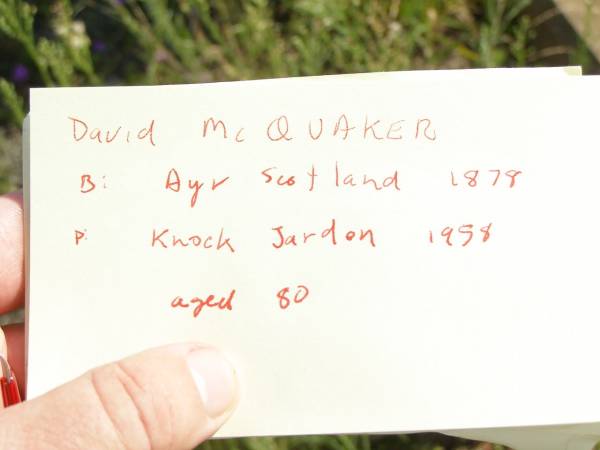 David McQUAKER
B: Ayr Scotland 1878
D: Knock Jardon 1958
aged 80